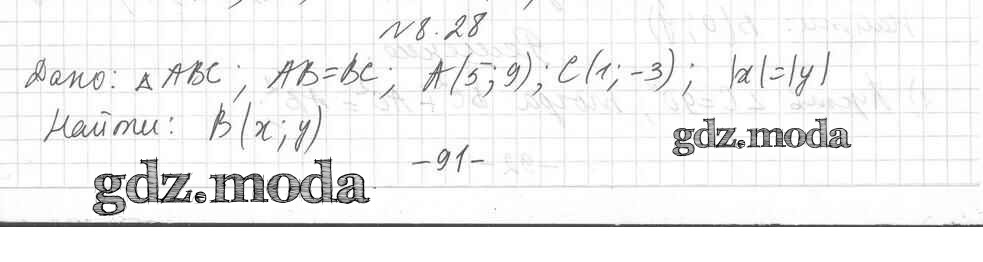 №8.28
Дано: △ABC; AB=BC; A(5; 9); C(1; -3); |x|=|y|
Найти: B(x; y)
gdz.moda
-91-
gdz.moda